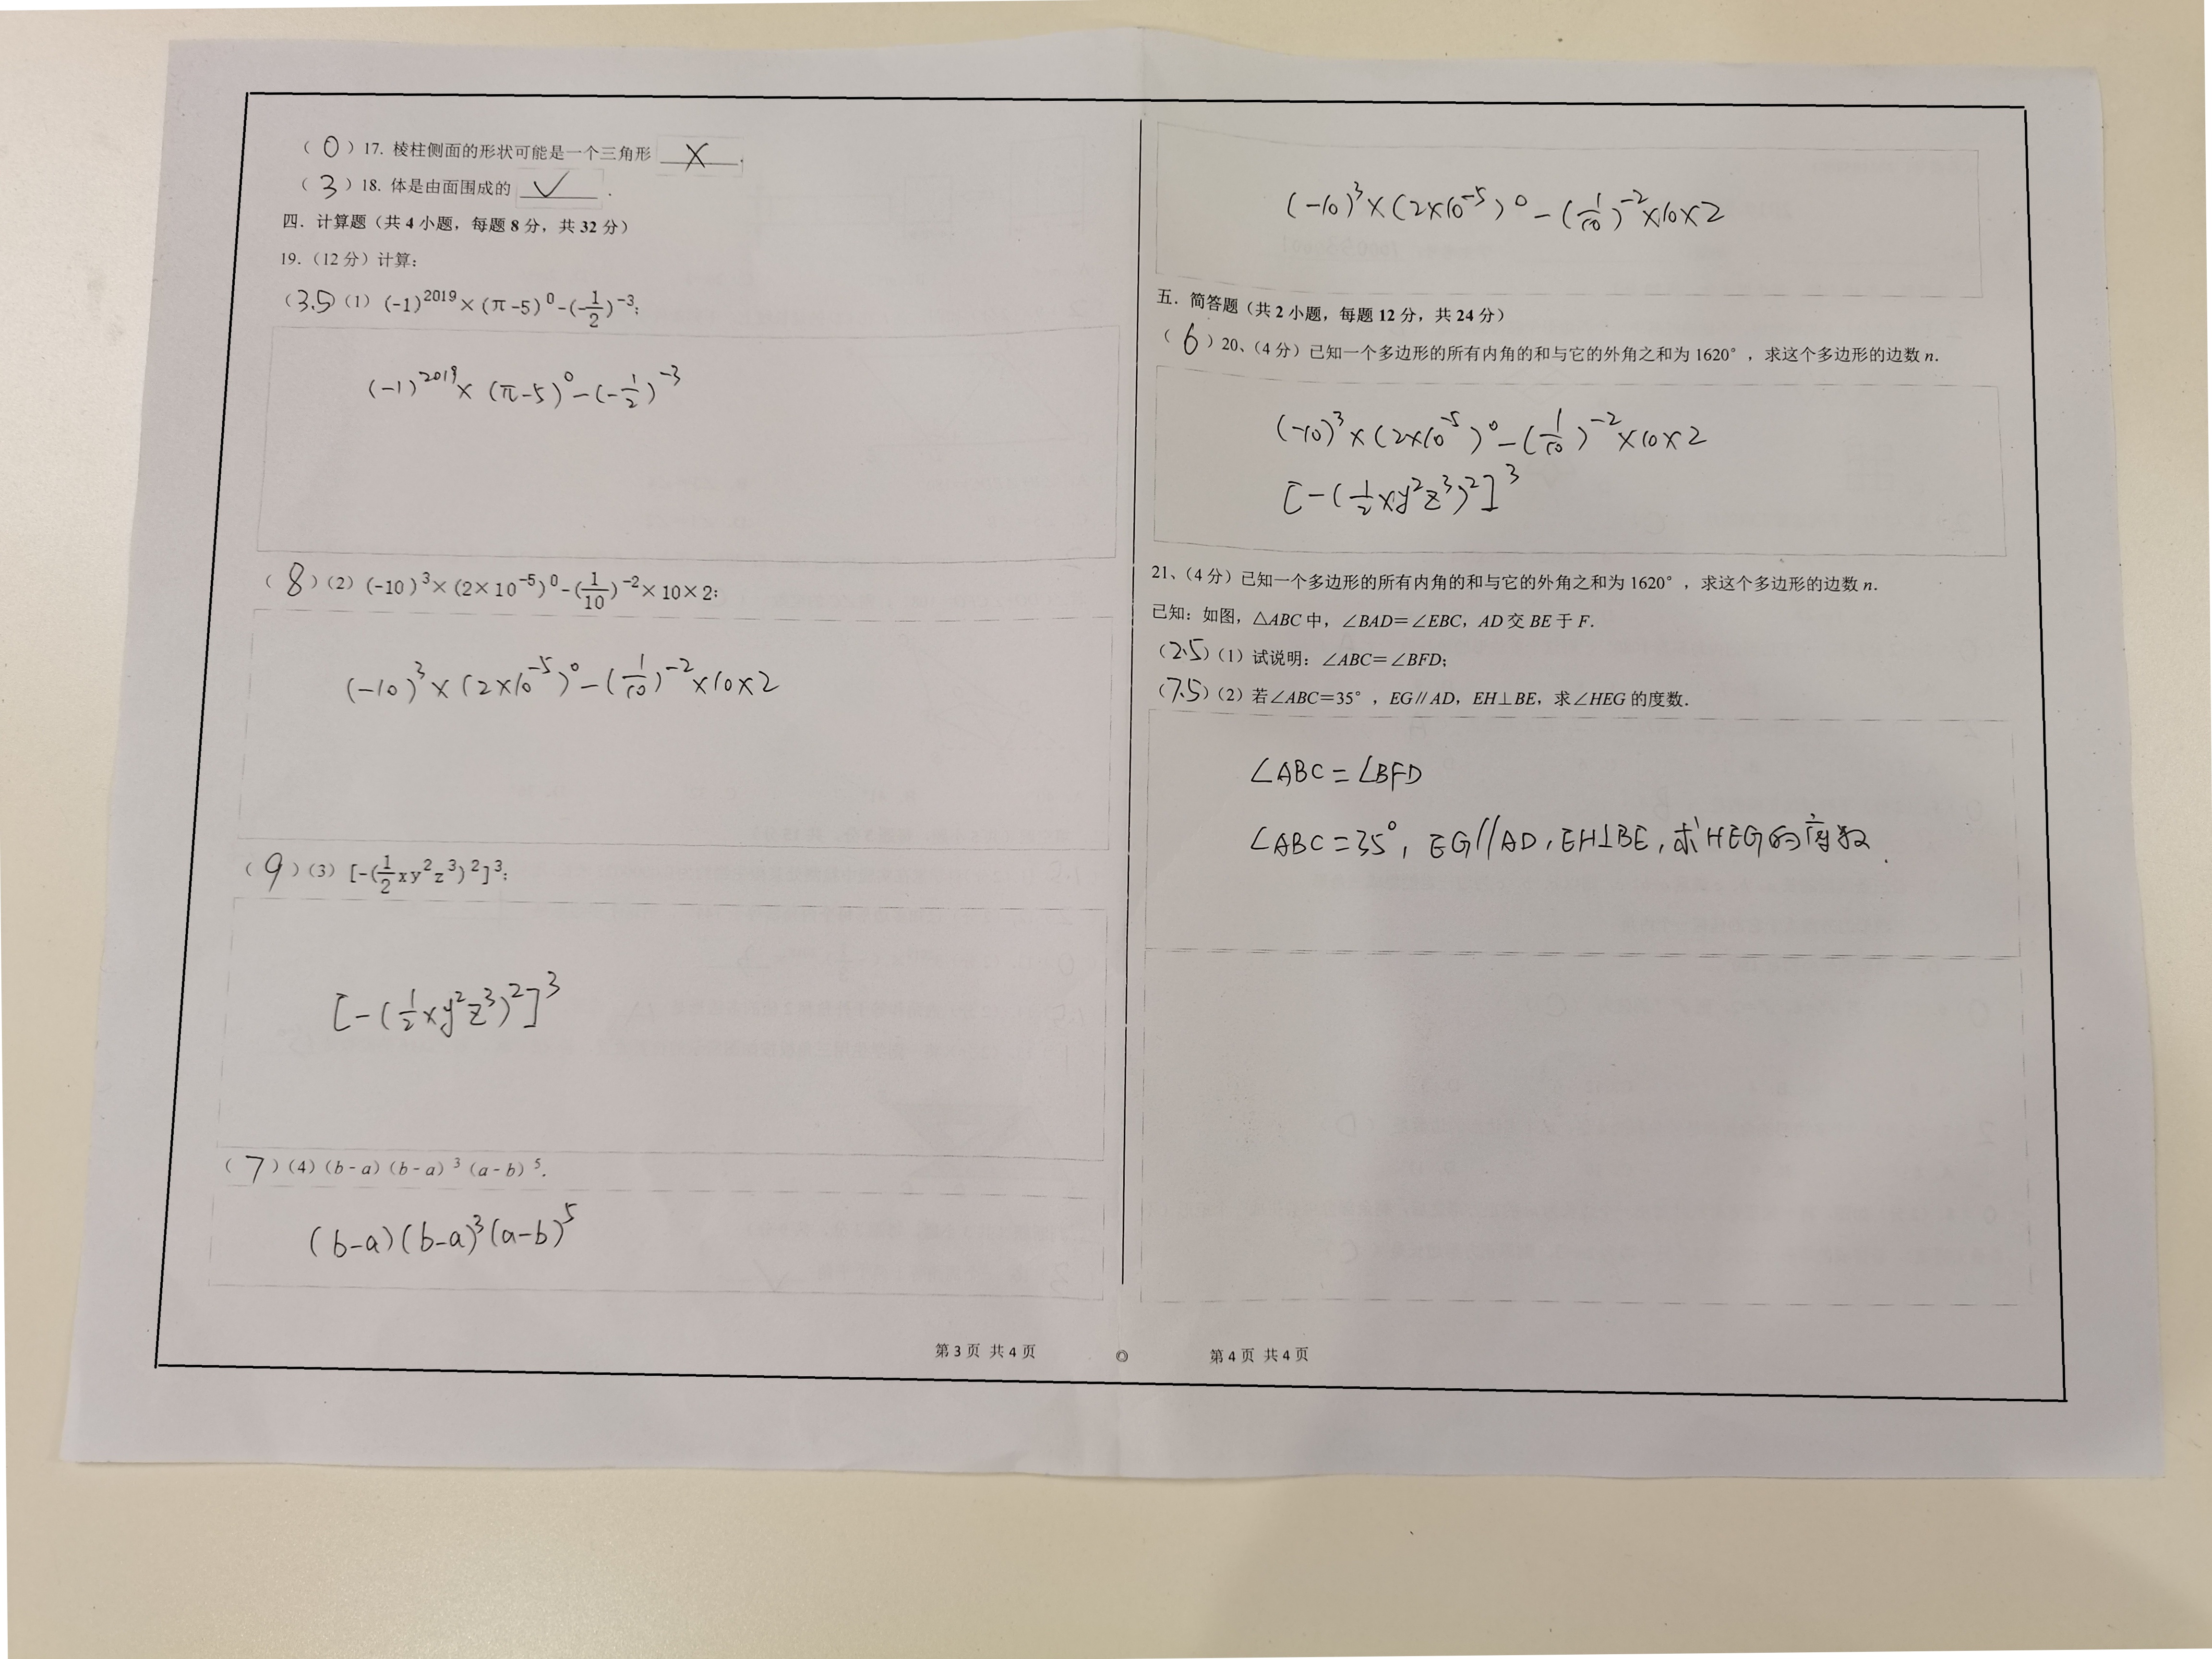 （ 0 ）17. 棱柱侧面的形状可能是一个三角形 X .
（ 3 ）18. 体是由面围成的 ✓ .
四．计算题（共 4 小题，每题 8 分，共 32 分）
19.（12 分）计算：
（3.5）（1） (-1)^2019×(π-5)^0-(-1/2)^-3;
(-1)^2019×(π-5)^0-(-1/2)^-3
（ 8 ）（2） (-10)^3×(2×10^-5)^0-(1/10)^-2×10×2;
(-10)^3×(2×10^-5)^0-(1/10)^-2×10×2
（ 9 ）（3） [-(1/2xy^2z^3)^2]^3;
[-(1/2xy^2z^3)^2]^3
（ 7 ）（4）(b-a)(b-a)^3(a-b)^5.
(b-a)(b-a)^3(a-b)^5
第 3 页 共 4 页
(-10)^3×(2×10^-5)^0-(1/10)^-2×10×2
五．简答题（共 2 小题，每题 12 分，共 24 分）
（ 6 ）20、（4 分）已知一个多边形的所有内角的和与它的外角之和为 1620°，求这个多边形的边数 n.
(-10)^3×(2×10^-5)^0-(1/10)^-2×10×2
[-(1/2xy^2z^3)^2]^3
21、（4 分）已知一个多边形的所有内角的和与它的外角之和为 1620°，求这个多边形的边数 n.
已知：如图，△ABC 中，∠BAD＝∠EBC，AD 交 BE 于 F.
（2.5）（1）试说明：∠ABC＝∠BFD；
（7.5）（2）若∠ABC＝35°，EG∥AD，EH⊥BE，求∠HEG 的度数.
∠ABC=∠BFD
∠ABC=35°, EG//AD, EH⊥BE, 求HEG的度数.
第 4 页 共 4 页